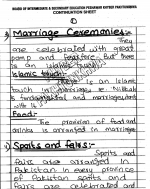 BOARD OF INTERMEDIATE & SECONDARY EDUCATION PESHAWAR KHYBER PAKHTUNKHWA
CONTINUATION SHEET
3) Marriage Ceremonies:-
They
are celebrated with great
pomp and But there
is an
Islamic touch:
There is an Islamic
touch in marriage i.e. Nikah
is fundamental and marriage
with it.
Food:-
The provision of food and
drinks is arranged in marriage.
4) Sports and fairs:-
Sports and
fairs are arranged in
Pakistan in every province
of Pakistan. Sports and
fairs are celebrated and